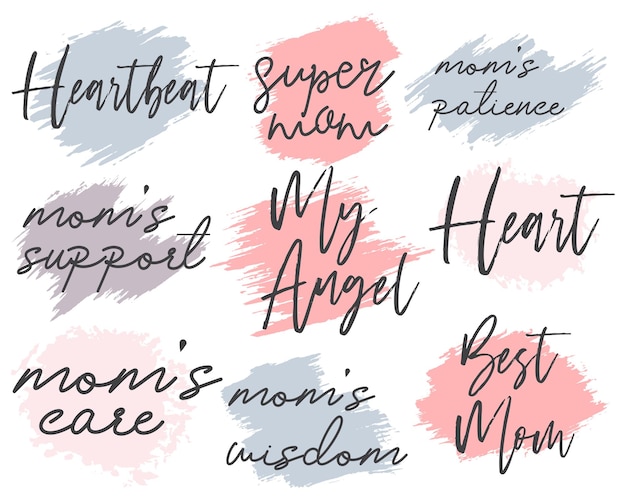 Heartbeat
super
mom
mom's
patience
mom's
support
My
Angel
Heart
mom's
care
mom's
wisdom
Best
Mom